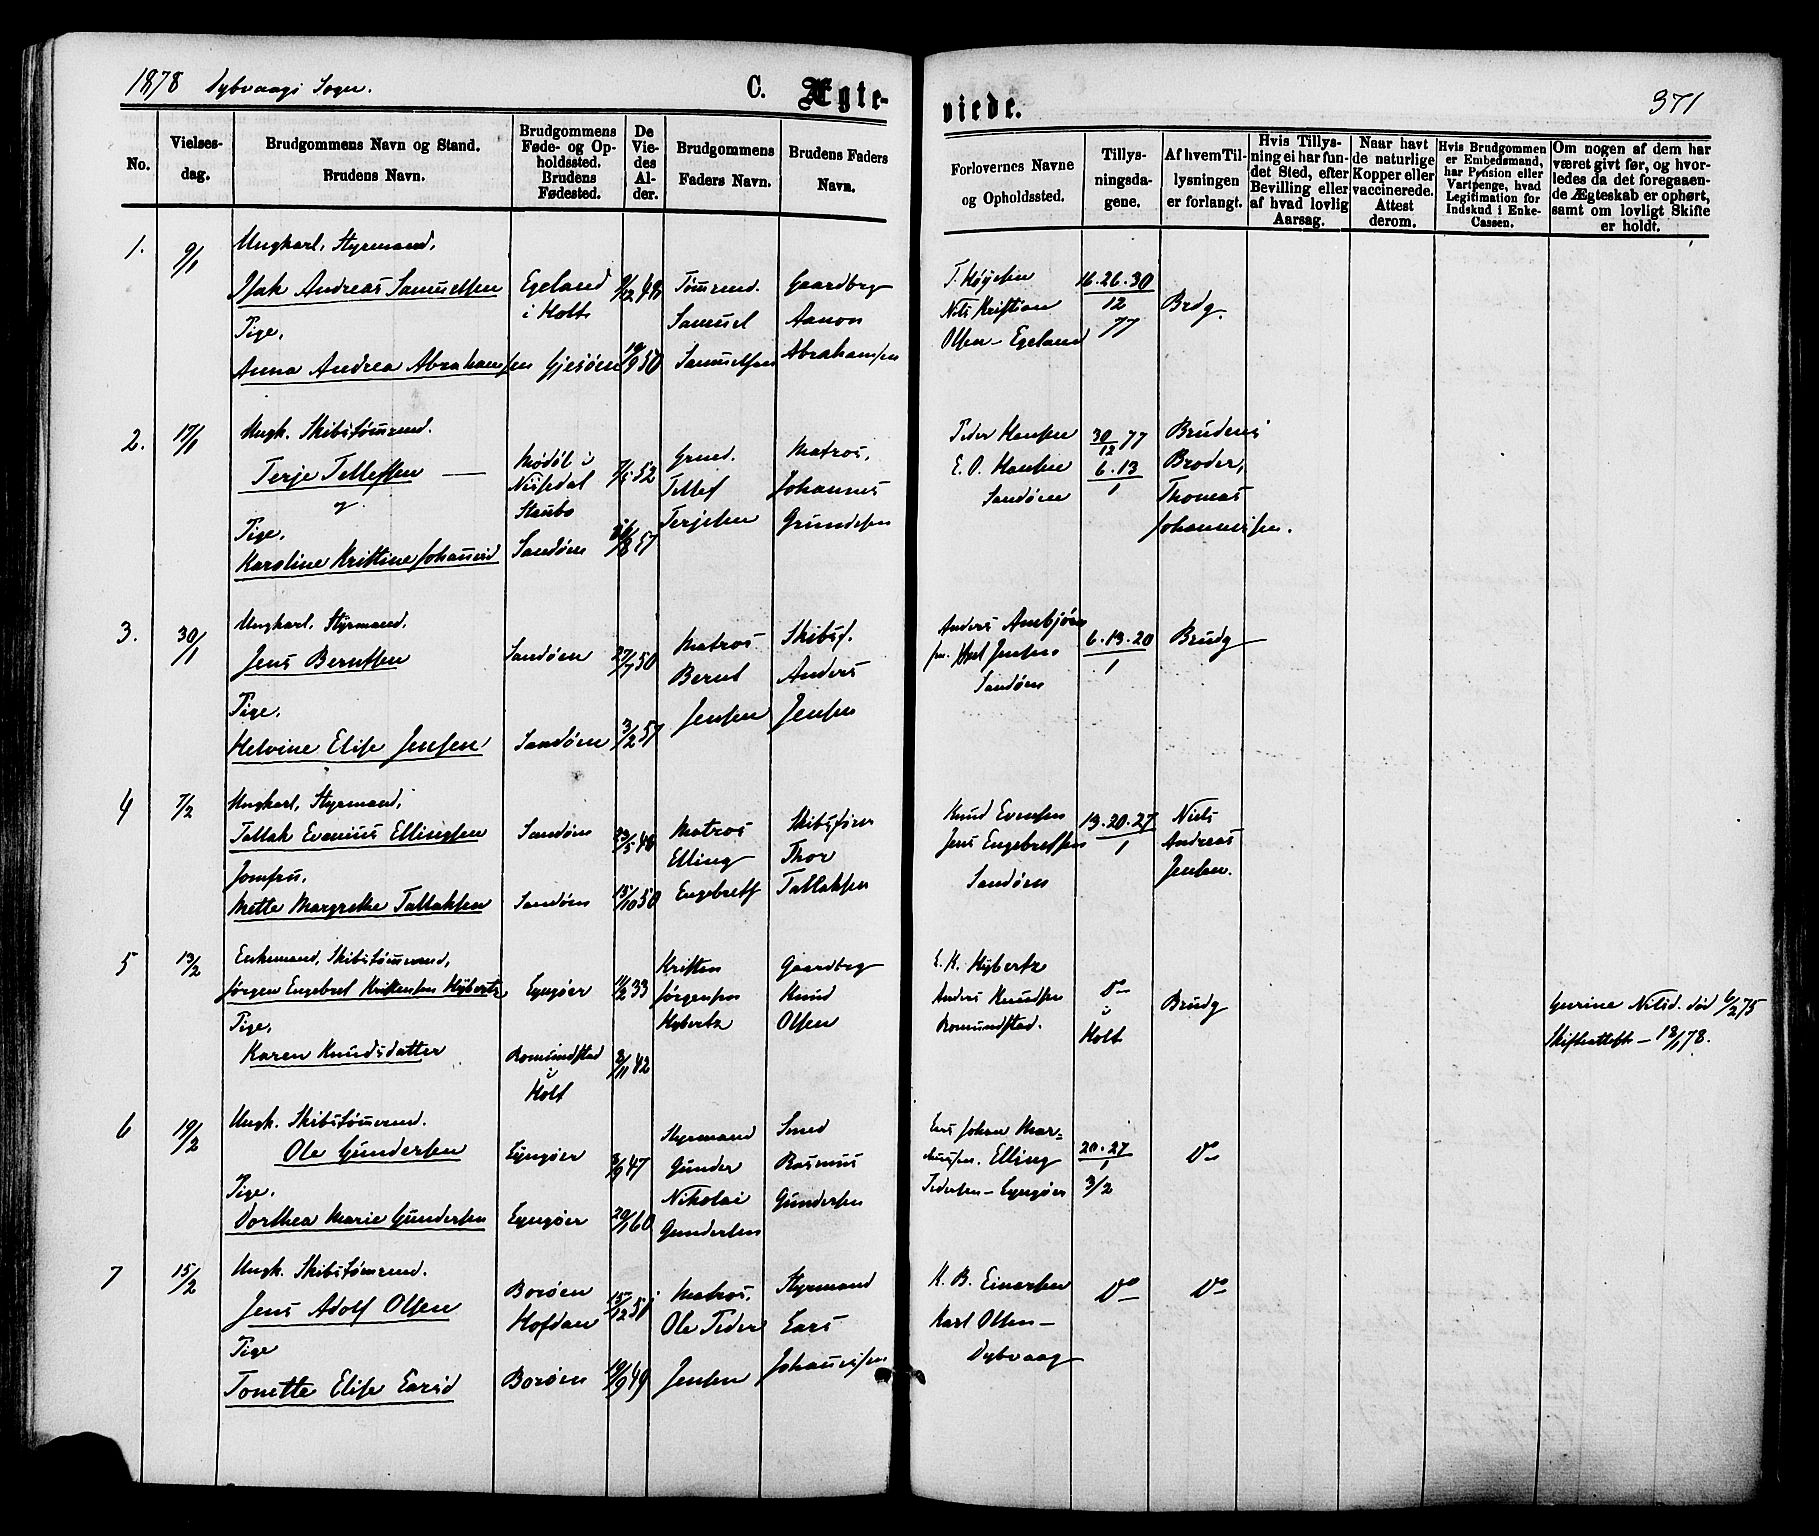 1878 Dybvaags Sogn. C. Ægte-
viede. 371
No.
Vielses-
dag.
Brudgommens Navn og Stand.
Brudens Navn.
Brudgommens
Føde- og Op-
holdssted.
Brudens
Fødested.
De
Vie-
des
Al-
der.
Brudgommens
Faders Navn.
Brudens Faders
Navn.
Forlovernes Navne
og Opholdssted.
Tillys-
ningsda-
gene.
Af hvem Til-
lysningen
er forlangt.
Hvis Tillys-
ning ei har fun-
det Sted, efter
Bevilling eller
af hvad lovlig
Aarsag.
Naar havt
de naturlige
Kopper eller
vaccinerede.
Attest
derom.
Hvis Brudgommen
er Embedsmand,
har Pension eller
Vartpenge, hvad
Legitimation for
Indskud i Enke-
Cassen.
Om nogen af dem har
været givt før, og hvor-
ledes da det foregaaen-
de Ægteskab er ophørt,
samt om lovligt Skifte
er holdt.
1. 9/1
Ungkarl, Styrmand,
Isak Andreas Samuelsen
Pige,
Anna Andrea Abrahamsen
Egeland
i Holt
Gjesøen
19/9 50
Tømmd.
Samuel
Samuelsen
Gaardbrg
Aanon
Abrahamsen
Nils Kristian
Olsen - Egeland
16. 26. 30
12
77
Brdg.
2. 17/1
Ungk. Skibstømmd.
Terje Tellefsen
Pige,
Karoline Kristine Johannsd
Nissedal
Staubo
Sandøen
7/5 52
8 57
Grmd.
Tellef
Terjesen
Matros,
Johannes
Grundesen
Peder Hansen
E. O. Hansen
Sandøen
30/12 77
6. 13
1
Brudens
Broder,
Thomas
Johannessen.
3. 30/1
Ungkarl, Styrmand,
Jens Berntsen
Pige,
Helvine Elise Jensen
Sandøen
Sandøen
27/7 50
3/2 57
Matros
Bernt
Jensen
Skibsf.
Anders
Jensen
Anders Ambjørn
sen. Jensen
Sandøen
6. 13. 20
1
Brudg
4 7/2
Ungkarl, Styrmand,
Tallak Evenius Ellingsen
Jomfru,
Mette Margrethe Tallaksen
Sandøen
Sandøen
23/5 48
15/10 50
Matros
Elling
Engebretsen
Skibsfører
Thor
Tallaksen
Knud Evensen
Jens Engebretsen
Sandøen
13. 20. 27
1
Niels
Andreas
Jensen.
5 13/2
Enkemand, Skibstømmd,
Jørgen Engebret Kristensen Hybertz
Pige,
Karen Knudsdatter
Lyngøer
Romundstad
i
Holt
11/2 33
2/11 42
Kristen
Jørgensen
Hybertz
Gaardbrg
Knud
Olsen
E. K. Hybertz
Anders Knudsen
Romundstad.
Do
i
Holt
Brudg
Gurine Nilsd. død 6/2 75
Skifteattest - 18/1 78.
6 19/2
Ungk. Skibstømmd.
Ole Gundersen
Pige,
Dorthea Marie Gundersen
Lyngøer
Lyngøer
3/9 47
20/1 60
Styrmand
Gunder
Nikolai
Gundersen
Smed
Rasmus
Gundersen
Lars Johan Mar-
kussen. Elling
Pedersen - Lyngøer
20. 27
1
3/2
Do
7 15/2
Ungk. Skibstømmd.
Jens Adolf Olsen
Pige
Tonette Elise Larsd
Borøen
Hofdan
Borøen
15/12 50
19/9 49
Matros,
Ole Peder
Jensen
Styrmand
Lars
Johannessen
K. B. Einarsen
Karl Olsen -
Dybvaag
Do
Do